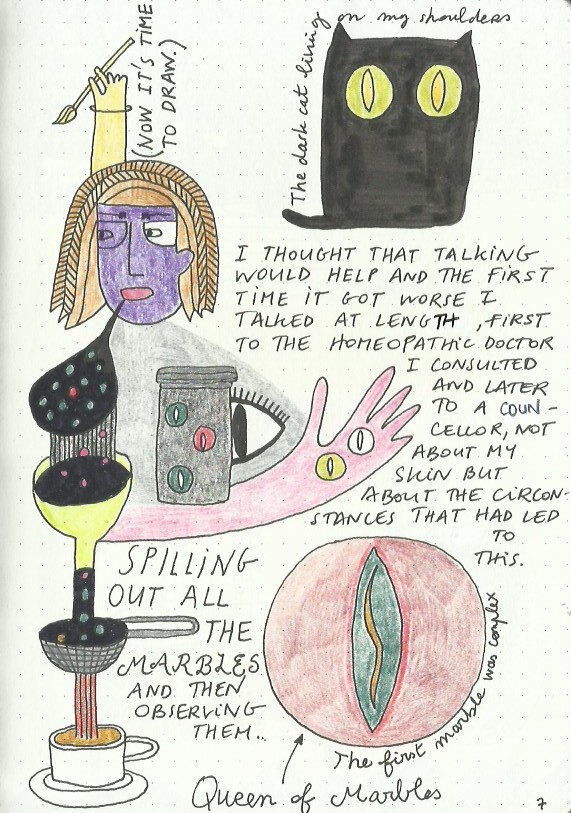 (NOW IT'S TIME
TO DRAW.)
The dark cat living on my shoulders
I THOUGHT THAT TALKING
WOULD HELP AND THE FIRST
TIME IT GOT WORSE I
TALKED AT LENGTH, FIRST
TO THE HOMEOPATHIC DOCTOR
I CONSULTED
AND LATER
TO A COUN-
CELLOR, NOT
ABOUT MY
SKIN BUT
ABOUT THE CIRCON-
STANCES THAT HAD LED
TO
THIS.
SPILLING
OUT ALL
THE
MARBLES
AND THEN
OBSERVING
THEM..
The first marble was conplex
Queen of Marbles
7